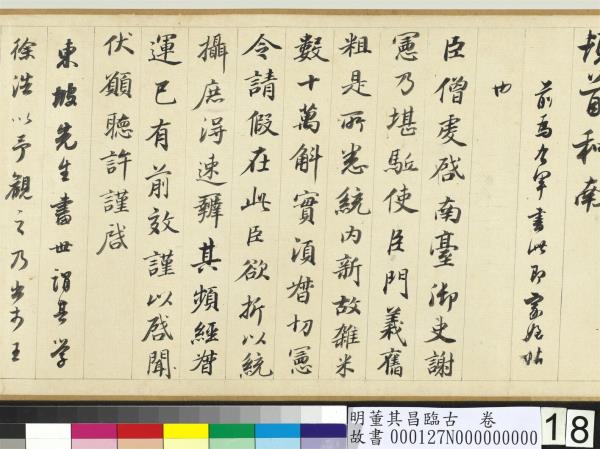 頓首和南
前為右軍書此即家姪帖
也
臣僧虔啓南臺御史謝
憲乃堪駈使臣門義舊
粗是所悉統內新故雜米
數十萬斛實須督切憲
令請假在此臣欲折以統
攝庶得速辦其頻經督
運已有前效謹以啓聞
伏願聽許謹啓
東坡先生書世謂其学
徐浩以予觀之乃出於王
明董其昌臨古 卷
故書 000127N000000000
18